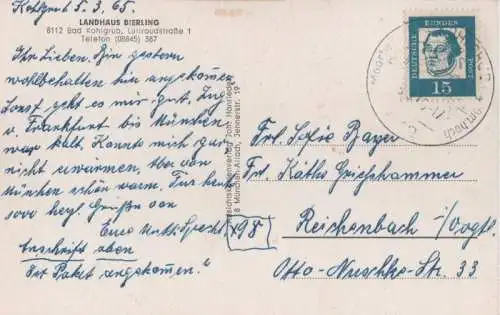 Kohlgrub 5.3.65.
LANDHAUS BIERLING
8112 Bad Kohlgrub, Luttroudstraße 1
Telefon (08845) 387
Ihr Lieben. Bin gestern
wohlbehalten hier angekommen.
Sonst geht es mir gut. Zug
v. Frankfurt bis München
war kalt. Konnte mich gar
nicht erwärmen. Aber von
München schön warm. Für heute
1000 herzl. Grüße von
Eurer
Anschrift oben
Ist Paket angekommen?
8 München-Allach, Jennerstr. 19
DEUTSCHE BUNDESPOST
15
Frl. Sofie Bayer
Frl. Käthe Grießhammer
Reichenbach i/Vogtl.
Otto-Nuschke-Str. 33
[x98]